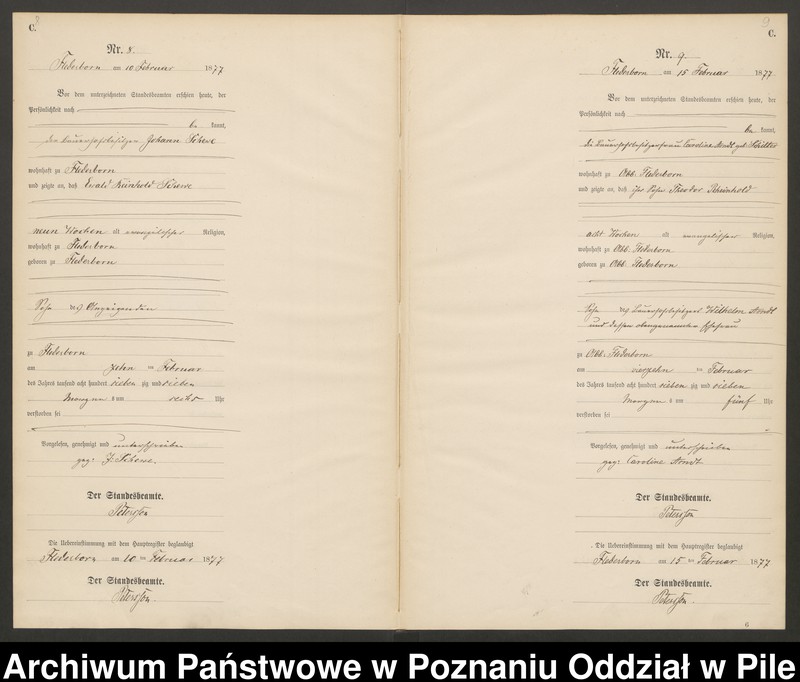 C.
8
Nr. 8.
Flederborn am 10 Februar 1877
Vor dem unterzeichneten Standesbeamten erschien heute, der
Persönlichkeit nach
be kannt,
der Bauerhofsbesitzer Johann
wohnhaft zu Flederborn
und zeigte an, daß Ewald Reinhold
neun Wochen alt evangelischer Religion,
wohnhaft zu Flederborn
geboren zu Flederborn
Sohn des Anzeigenden
zu Flederborn
am zehn ten Februar
des Jahres tausend acht hundert sieben zig und sieben
Morgens um sechs Uhr
verstorben sei
Vorgelesen, genehmigt und unterschrieben
gez: J.
Der Standesbeamte.
Peterssen
Die Uebereinstimmung mit dem Hauptregister beglaubigt
Flederborn am 10 ten Februar 1877
Der Standesbeamte.
Peterssen
9
C.
Nr. 9.
Flederborn am 15 Februar 1877
Vor dem unterzeichneten Standesbeamten erschien heute, der
Persönlichkeit nach
be kannt,
die Bauerhofsbesitzerfrau Caroline Arndt geb.
wohnhaft zu Abb. Flederborn
und zeigte an, daß ihr Sohn Theodor Rheinhold
acht Wochen alt evangelischer Religion,
wohnhaft zu Abb. Flederborn
geboren zu Abb. Flederborn
Sohn des Bauerhofsbesitzers Wilhelm Arndt
und dessen obengenannter Ehefrau
zu Abb. Flederborn
am vierzehn ten Februar
des Jahres tausend acht hundert sieben zig und sieben
Morgens um fünf Uhr
verstorben sei
Vorgelesen, genehmigt und unterschrieben
gez: Caroline Arndt
Der Standesbeamte.
Peterssen
Die Uebereinstimmung mit dem Hauptregister beglaubigt
Flederborn am 15 ten Februar 1877
Der Standesbeamte.
Peterssen
6
Archiwum Państwowe w Poznaniu Oddział w Pile